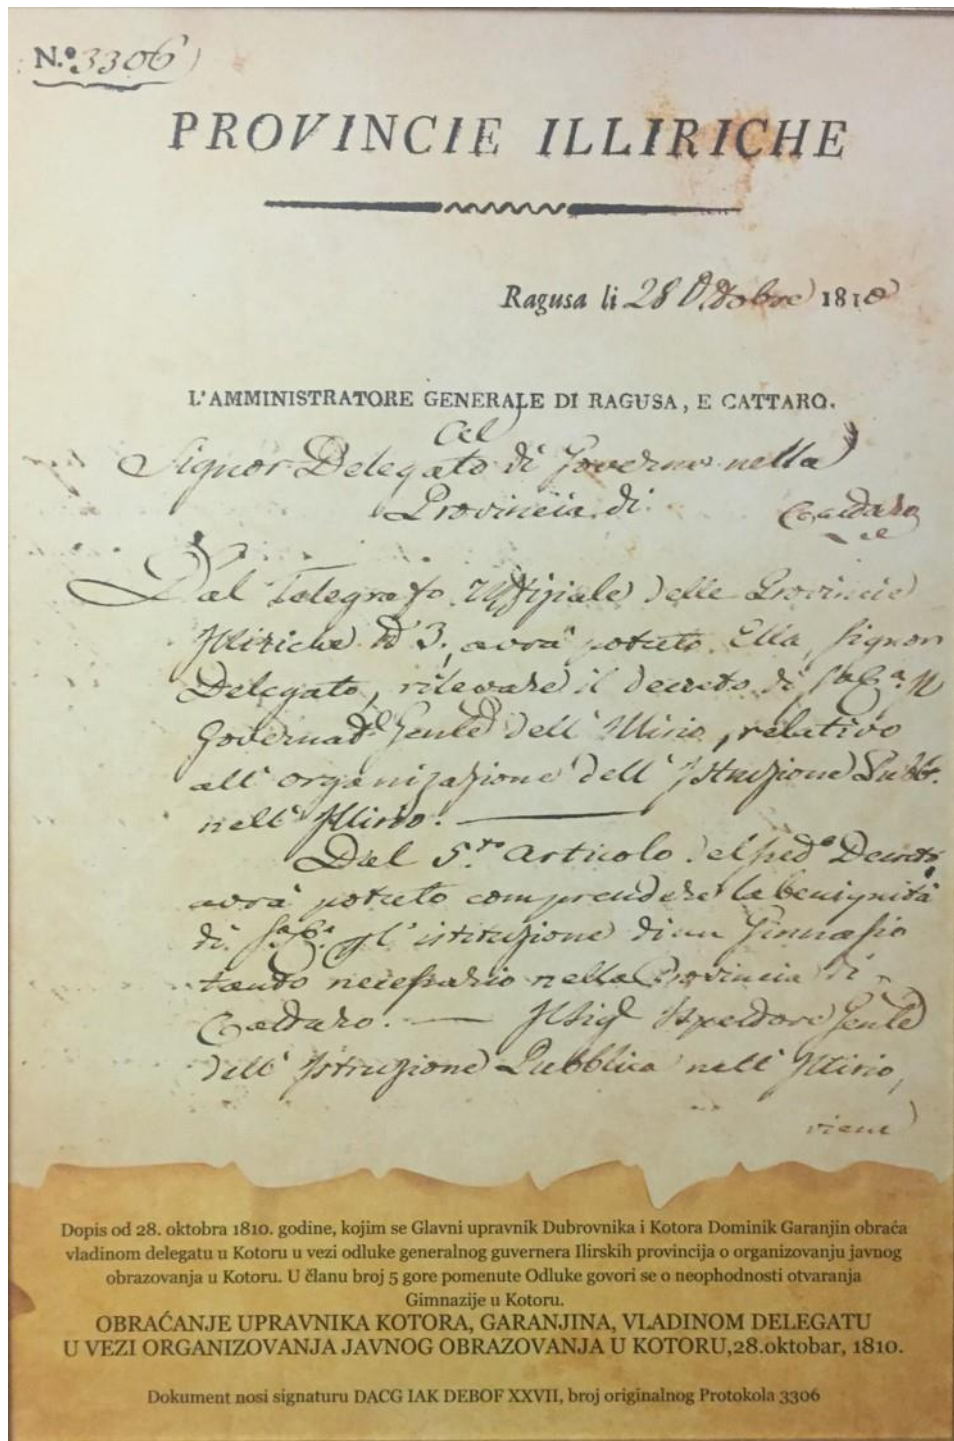 N.º 3306
PROVINCIE ILLIRICHE
Ragusa li 28 Ottobre 1810
L'AMMINISTRATORE GENERALE DI RAGUSA, E CATTARO.
Al
Signor Delegato di Governo nella
Provincia di Cattaro
Dal Telegrafo Uffiziale delle Provincie
Illiriche Nº 3., avrà potuto Ella, Signor
Delegato, rilevare il decreto di
dell' Illirio, relativo
all' organizazione dell' Istruzione
nell' Illirio.
Dal 5.to Articolo Decreto
avrà potuto comprendere la benignità
di l'istituzione di un Ginnasio
tanto necessario nella Provincia di
Cattaro. — Il Sig Ispettore
dell' Istruzione Pubblica nell' Illirio,
viene
Dopis od 28. oktobra 1810. godine, kojim se Glavni upravnik Dubrovnika i Kotora Dominik Garanjin obraća
vladinom delegatu u Kotoru u vezi odluke generalnog guvernera Ilirskih provincija o organizovanju javnog
obrazovanja u Kotoru. U članu broj 5 gore pomenute Odluke govori se o neophodnosti otvaranja
Gimnazije u Kotoru.
OBRAĆANJE UPRAVNIKA KOTORA, GARANJINA, VLADINOM DELEGATU
U VEZI ORGANIZOVANJA JAVNOG OBRAZOVANJA U KOTORU,28.oktobar, 1810.
Dokument nosi signaturu DACG IAK DEBOF XXVII, broj originalnog Protokola 3306